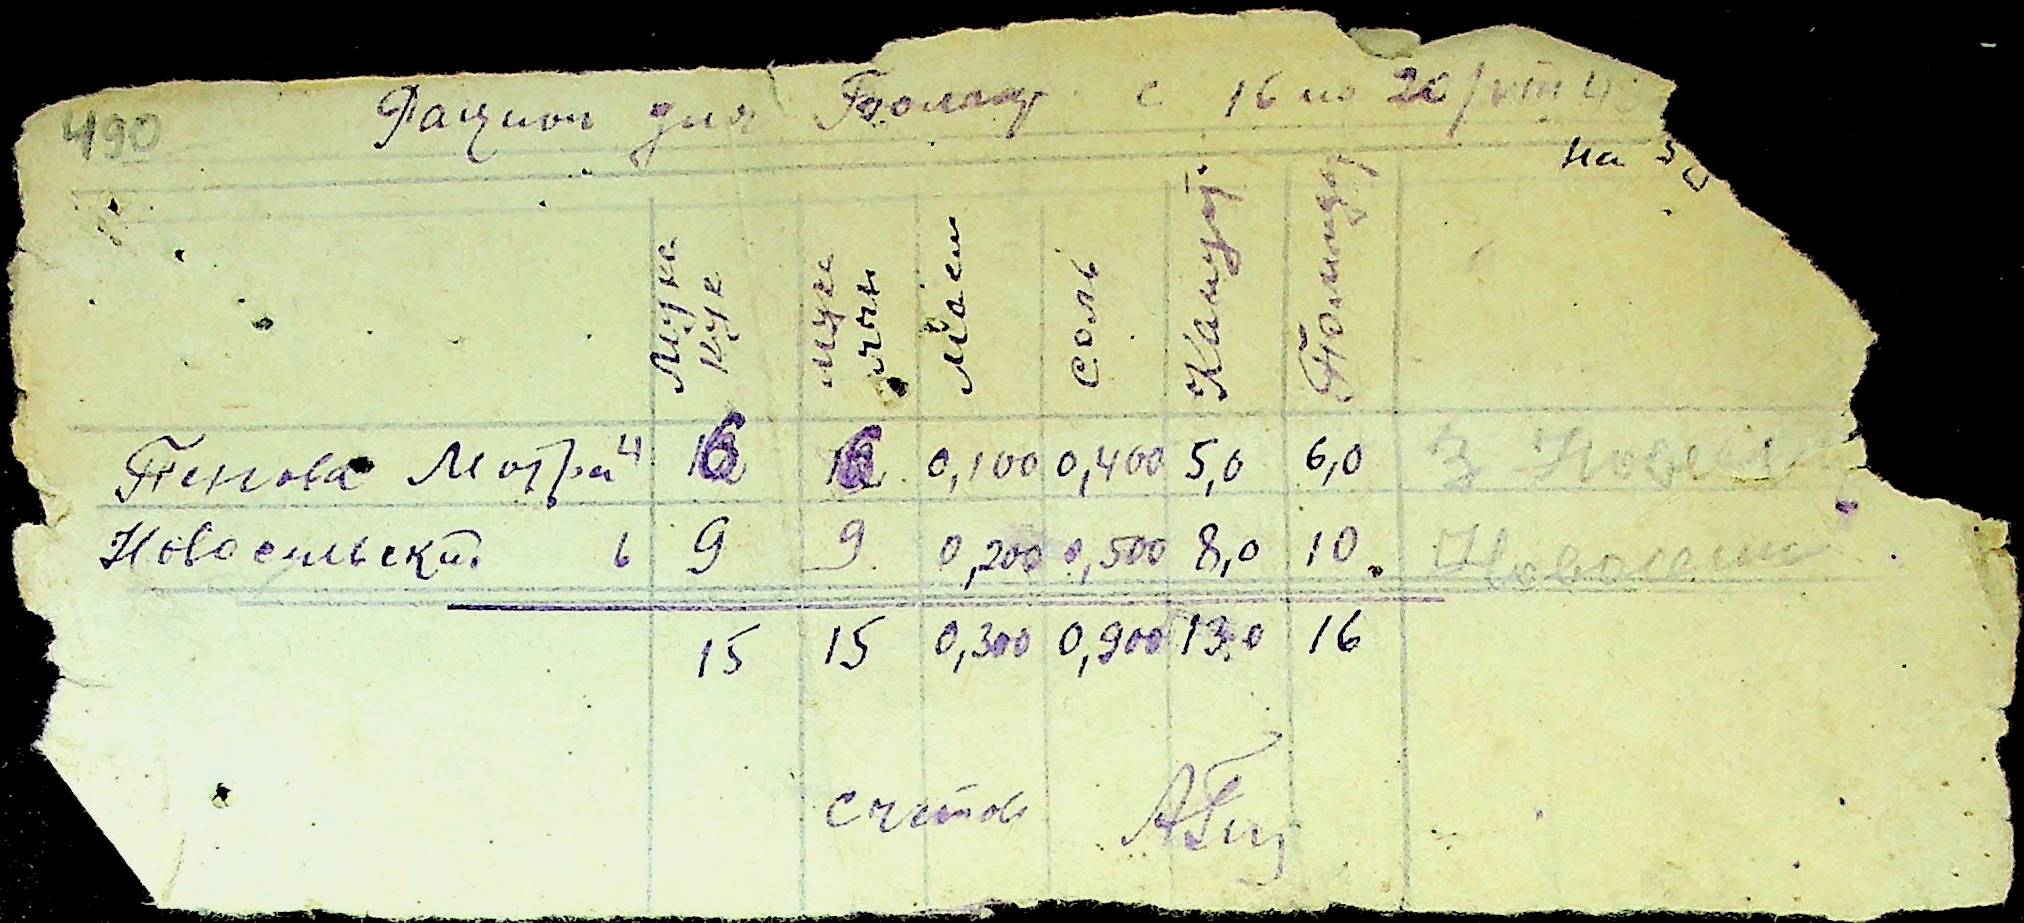 490 Рацион для Больн. с 16 по 20/VIII 4
на 5 д
Мука кук Мука ячн Масл Соль Капуст. Помидор
Пенова Мотря 4 6 6 0,100 0,400 5,0 6,0
Новосельский 6 9 9 0,200 0,500 8,0 10. Новосели
15 15 0,300 0,900 13,0 16
счетов